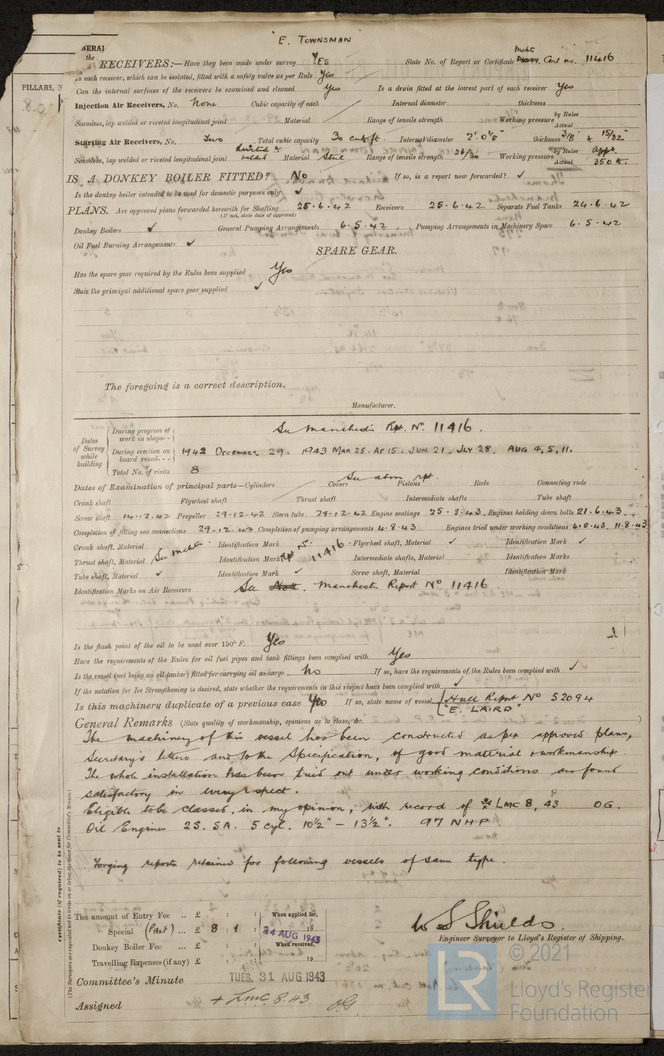 "E. TOWNSMAN
PILLARS, N
the RECEIVERS:—Have they been made under survey Yes State No. of Report or Certificate Cert no. 11416
Is each receiver, which can be isolated, fitted with a safety valve as per Rule Yes
Can the internal surfaces of the receivers be examined and cleaned Yes Is a drain fitted at the lowest part of each receiver Yes
Injection Air Receivers, No. None Cubic capacity of each Internal diameter thickness
Seamless, lap welded or riveted longitudinal joint Material Range of tensile strength Working pressure by Rules Actual
Starting Air Receivers, No. Two Total cubic capacity 30 cub ft. Internal diameter 2' 0⅛" thickness 3/8 + 15/32"
Seamless, lap welded or riveted longitudinal joint Riveted & welded Material Steel Range of tensile strength 26/30 Working pressure by Rules App. Actual 350 lb.
IS A DONKEY BOILER FITTED? No If so, is a report now forwarded? ✓
Is the donkey boiler intended to be used for domestic purposes only ✓
PLANS. Are approved plans forwarded herewith for Shafting 25.6.42 Receivers 25.6.42 Separate Fuel Tanks 24.6.42
(If not, state date of approval)
Donkey Boilers ✓ General Pumping Arrangements 6.5.42 Pumping Arrangements in Machinery Space 6.5.42
Oil Fuel Burning Arrangements ✓
SPARE GEAR.
Has the spare gear required by the Rules been supplied Yes
State the principal additional spare gear supplied ✓
The foregoing is a correct description,
Manufacturer.
Dates of Survey while building
During progress of work in shops - - See Manchester Rpt. No. 11416.
During erection on board vessel - - - 1942 December 29. 1943 Mar 25. Ap 15. Jun 21. Jly 28. Aug 4, 5, 11.
Total No. of visits 8
See above rpt.
Dates of Examination of principal parts—Cylinders Covers Pistons Rods Connecting rods
Crank shaft Flywheel shaft Thrust shaft Intermediate shafts Tube shaft
Screw shaft 14.12.42 Propeller 29-12-42 Stern tube 29-12-42 Engine seatings 25.3.43. Engines holding down bolts 21.6.43.
Completion of fitting sea connections 29.12.42 Completion of pumping arrangements 4.8.43. Engines tried under working conditions 4.8.43, 11.8.43
Crank shaft, Material Identification Mark Flywheel shaft, Material ✓ Identification Mark ✓
Thrust shaft, Material Identification Mark Rpt No. 11416 Intermediate shafts, Material Identification Marks
Tube shaft, Material ✓ Identification Mark ✓ Screw shaft, Material Identification Mark
Identification Marks on Air Receivers See Manchester Report No 11416
Is the flash point of the oil to be used over 150° F. Yes
Have the requirements of the Rules for oil fuel pipes and tank fittings been complied with Yes
Is the vessel (not being an oil tanker) fitted for carrying oil as cargo No If so, have the requirements of the Rules been complied with ✓
If the notation for Ice Strengthening is desired, state whether the requirements in this respect have been complied with ✓
Is this machinery duplicate of a previous case Yes If so, state name of vessel Hull Report No 52094
"E. LAIRD"
General Remarks (State quality of workmanship, opinions as to class, &c.)
The machinery of this vessel has been constructed as per approved plans,
Secretary's letters and to the Specification, of good material & workmanship
The whole installation has been tried out under working conditions and found
satisfactory in every respect.
Eligible to be classed, in my opinion, with record of LMC 8, 43 OG.
Oil Engines 2S. SA. 5 cyl. 10½" – 13½". 97 NHP
Forging reports retained for following vessels of same type.
certificate (if required) to be sent to
(The Surveyors are requested not to write on or below the space for Committee's Minute.)
The amount of Entry Fee .. £ : : When applied for,
Special (Part) ... £ 8 : 1 : 24 AUG 1943
Donkey Boiler Fee ... £ : : When received,
Travelling Expenses (if any) £ : : 19
W S Shields.
Engineer Surveyor to Lloyd's Register of Shipping.
Committee's Minute TUES. 31 AUG 1943
Assigned + Lmc 8.43 OG
© 2021
LR
Lloyd's Register
Foundation